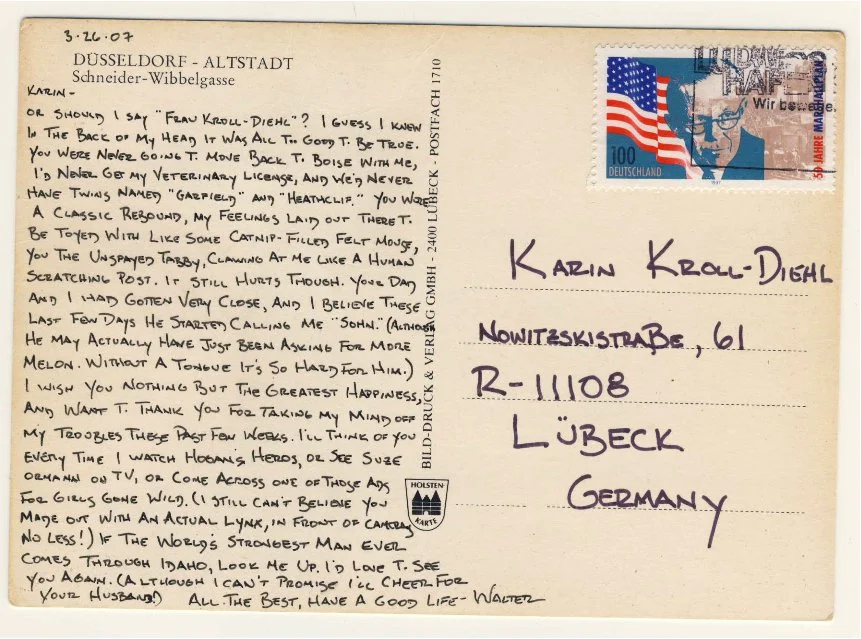 3·26·07
DÜSSELDORF - ALTSTADT
Schneider-Wibbelgasse
KARIN-
OR SHOULD I SAY "FRAU KROLL-DIEHL"? I GUESS I KNEW
IN THE BACK OF MY HEAD IT WAS ALL TO GOOD T. BE TRUE.
YOU WERE NEVER GOING T. MOVE BACK T. BOISE WITH ME,
I'D NEVER GET MY VETERINARY LICENSE, AND WE'D NEVER
HAVE TWINS NAMED "GARFIELD" AND "HEATHCLIF." YOU WERE
A CLASSIC REBOUND, MY FEELINGS LAID OUT THERE T.
BE TOYED WITH LIKE SOME CATNIP-FILLED FELT MOUSE,
YOU THE UNSPAYED TABBY, CLAWING AT ME LIKE A HUMAN
SCRATCHING POST. IT STILL HURTS THOUGH. YOUR DAD
AND I HAD GOTTEN VERY CLOSE, AND I BELIEVE THESE
LAST FEW DAYS HE STARTED CALLING ME "SOHN." (ALTHOUGH
HE MAY ACTUALLY HAVE JUST BEEN ASKING FOR MORE
MELON. WITHOUT A TONGUE IT'S SO HARD FOR HIM.)
I WISH YOU NOTHING BUT THE GREATEST HAPPINESS,
AND WANT T. THANK YOU FOR TAKING MY MIND OFF
MY TROUBLES THESE PAST FEW WEEKS. I'LL THINK OF YOU
EVERY TIME I WATCH HOGAN'S HEROS, OR SEE SUZE
ORMANN ON TV, OR COME ACROSS ONE OF THOSE ADS
FOR GIRLS GONE WILD. (I STILL CAN'T BELIEVE YOU
MADE OUT WITH AN ACTUAL LYNX, IN FRONT OF CAMERAS
NO LESS!) IF THE WORLD'S STRONGEST MAN EVER
COMES THROUGH IDAHO, LOOK ME UP. I'D LOVE T. SEE
YOU AGAIN. (ALTHOUGH I CAN'T PROMISE I'LL CHEER FOR
YOUR HUSBAND!) ALL THE BEST, HAVE A GOOD LIFE- WALTER
BILD-DRUCK & VERLAG GMBH - 2400 LÜBECK - POSTFACH 1710
HOLSTEN-
KARTE
100
DEUTSCHLAND
50 JAHRE MARSHALLPLAN
1997
Wir bewahre
KARIN KROLL-DIEHL
NOWITZSKISTRAßE, 61
R-11108
LÜBECK
GERMANY